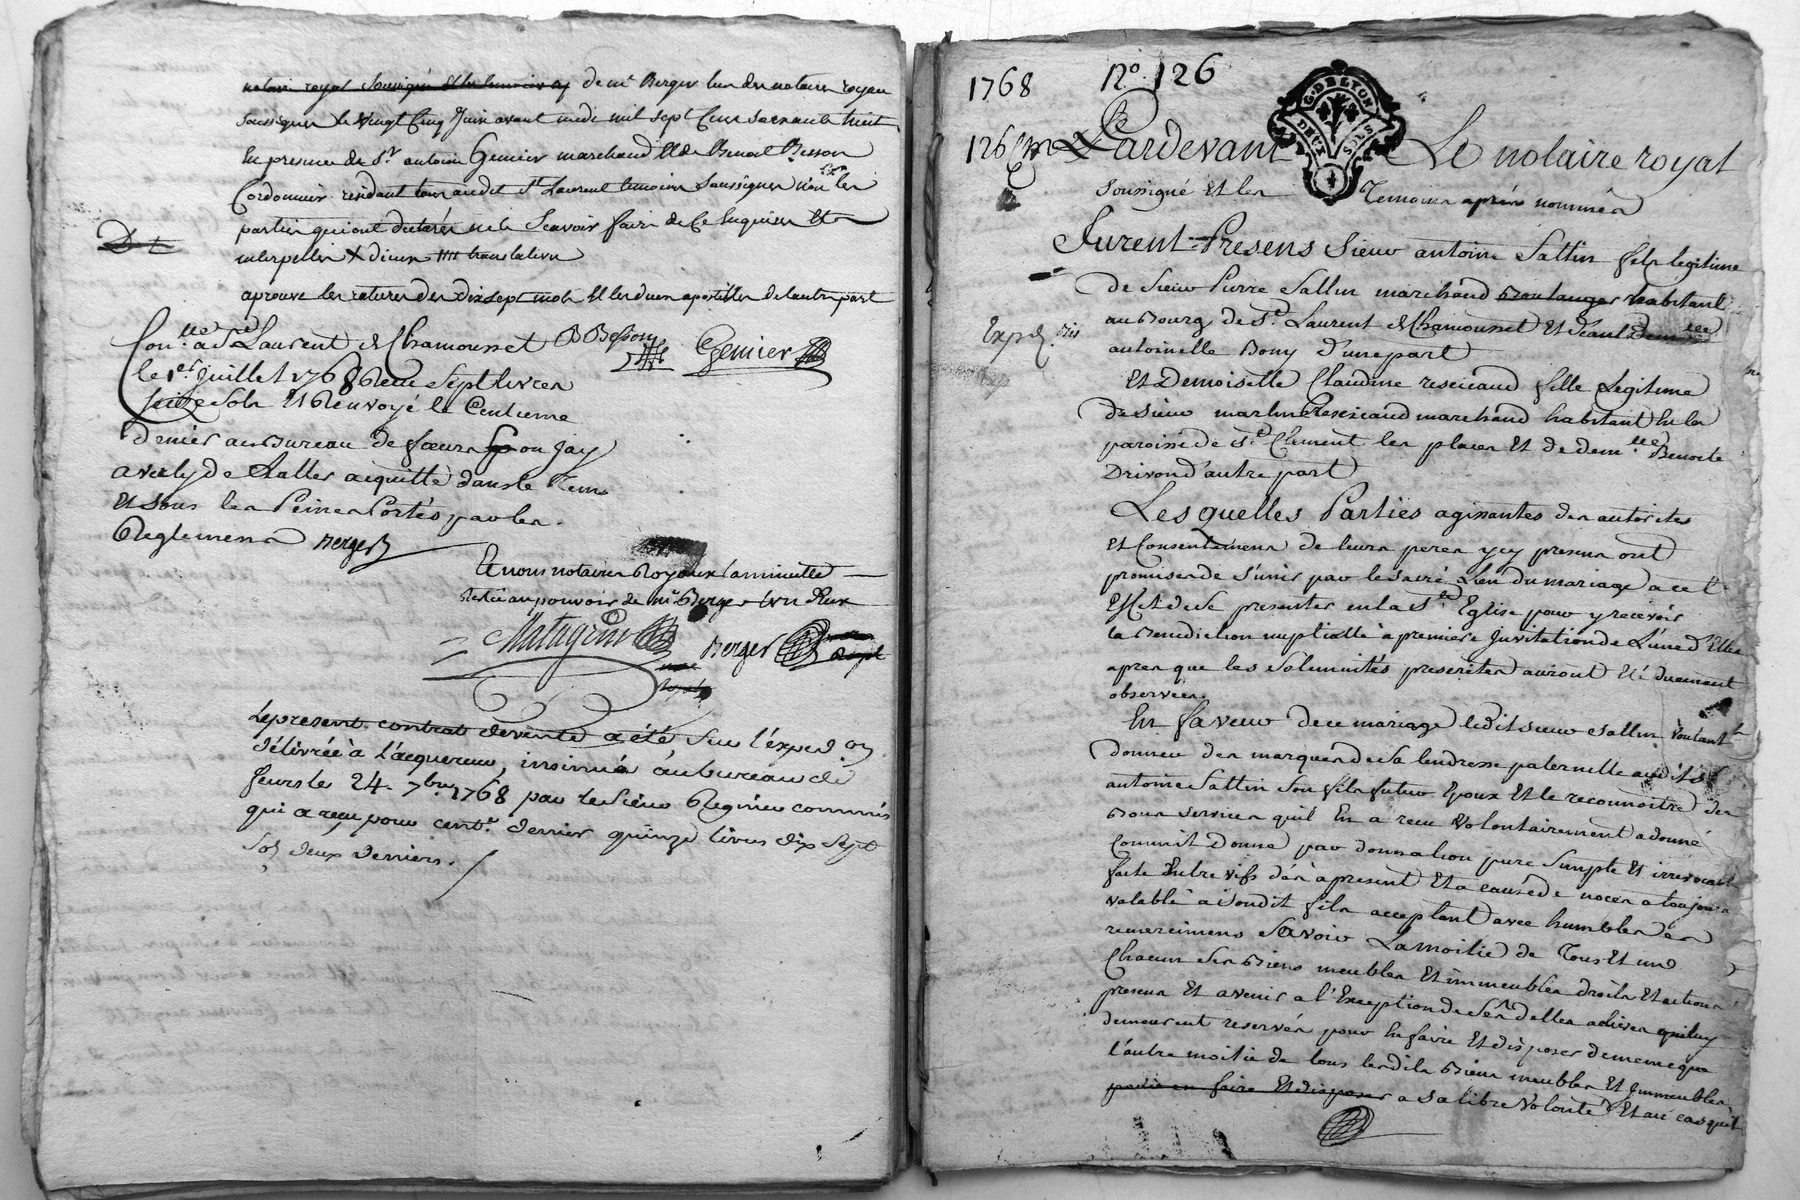 notaire royal soussigné et les temoins cy de me Berger lun des notaires royaux
soussignes le vingt cinq Juin avant midi mil sept Cens soixante huit
En presence de Sr antoine Genier marchand et de Benoit Besson
Cordonnier residant tous audit St Laurent temoins soussignes non les
parties qui ont declarés ne le Scavoir faire de Ce Enquises et
interpellés X dieux translation
aprouve les ratures des dixsept mots et les deux apostilles de lautre part
Con.lle a St Laurent de Chamousset B Besson Genier
le 1er Juillet 1768 Receu Sept livres
Seize Sols Et Renvoyé le Centieme
denier au Bureau de feurs ou Jay
averty de Laller acquitté dans le Tems
Et sous les Peines Portés par les
Reglemens Berger
Et nous notaires Royaux la minutte
Restée au pouvoir de me Berger lun deux
Matagrin Berger
Le present contrat de vente a été, sur l'exped.on
délivrée à l'acquereur, insinué au bureau de
feurs le 24. 7bre 1768 par le Sieur Regnier commis
qui a reçu pour cent.e denier quinze livres dix sept
Sols deux deniers.
1768 No. 126
126 Cm Pardevant Le notaire royal
G. DE LYON
DEUX SOLS
soussigné Et les Temoins aprés nommés
Furent Presens Sieur antoine Sallin fils legitime
de Sieur Pierre Sallin marchand Boulanger habitant
au Bourg de St Laurent de Chamousset Et de Demlle
Exped. bis
antoinette Bony d'une part
Et Demoiselle Claudine reseicaud fille Legitime
de Sieur martin Reseicaud marchand habitant En la
paroisse de St Clement les places Et de demlle Benoite
Drivon d'autre part
Les quelles Parties agissantes des autorites
Et Consentemens de leurs peres y cy presens ont
promises de s'unir par le sacré Lien du mariage a cet
Effet de Se presenter en la Ste Eglise pour y recevoir
la Benediction nuptialle à premiere Invitation de L'une d'Elles
apres que les Solemnités prescrites auront Eté duement
observées.
En faveur de ce mariage ledit sieur Sallin voulant
donner des marques de sa tendresse paternelle audit Sr
antoine Sallin Son fils futur Epoux Et le reconnoitre des
Bons services quil En a recu volontairement a donné
Comme il Donne par donnation pure Simple Et irrevocable
faite Entre vifs dés à present Et a cause de noces a toujours
valable à Sondit fils acceptant avec humbles
remercimens Savoir La moitié de Tous Et un
Chacun Ses Biens meubles Et immeubles droits Et actions
presens Et avenir a l'Exception de Ses dettes actives quil luy
demeurent reservés pour En faire Et disposer de meme que
l'autre moitié de tous lesdits Biens meubles Et Immeubles
pour en faire Et disposer a sa libre volonté Et au cas que